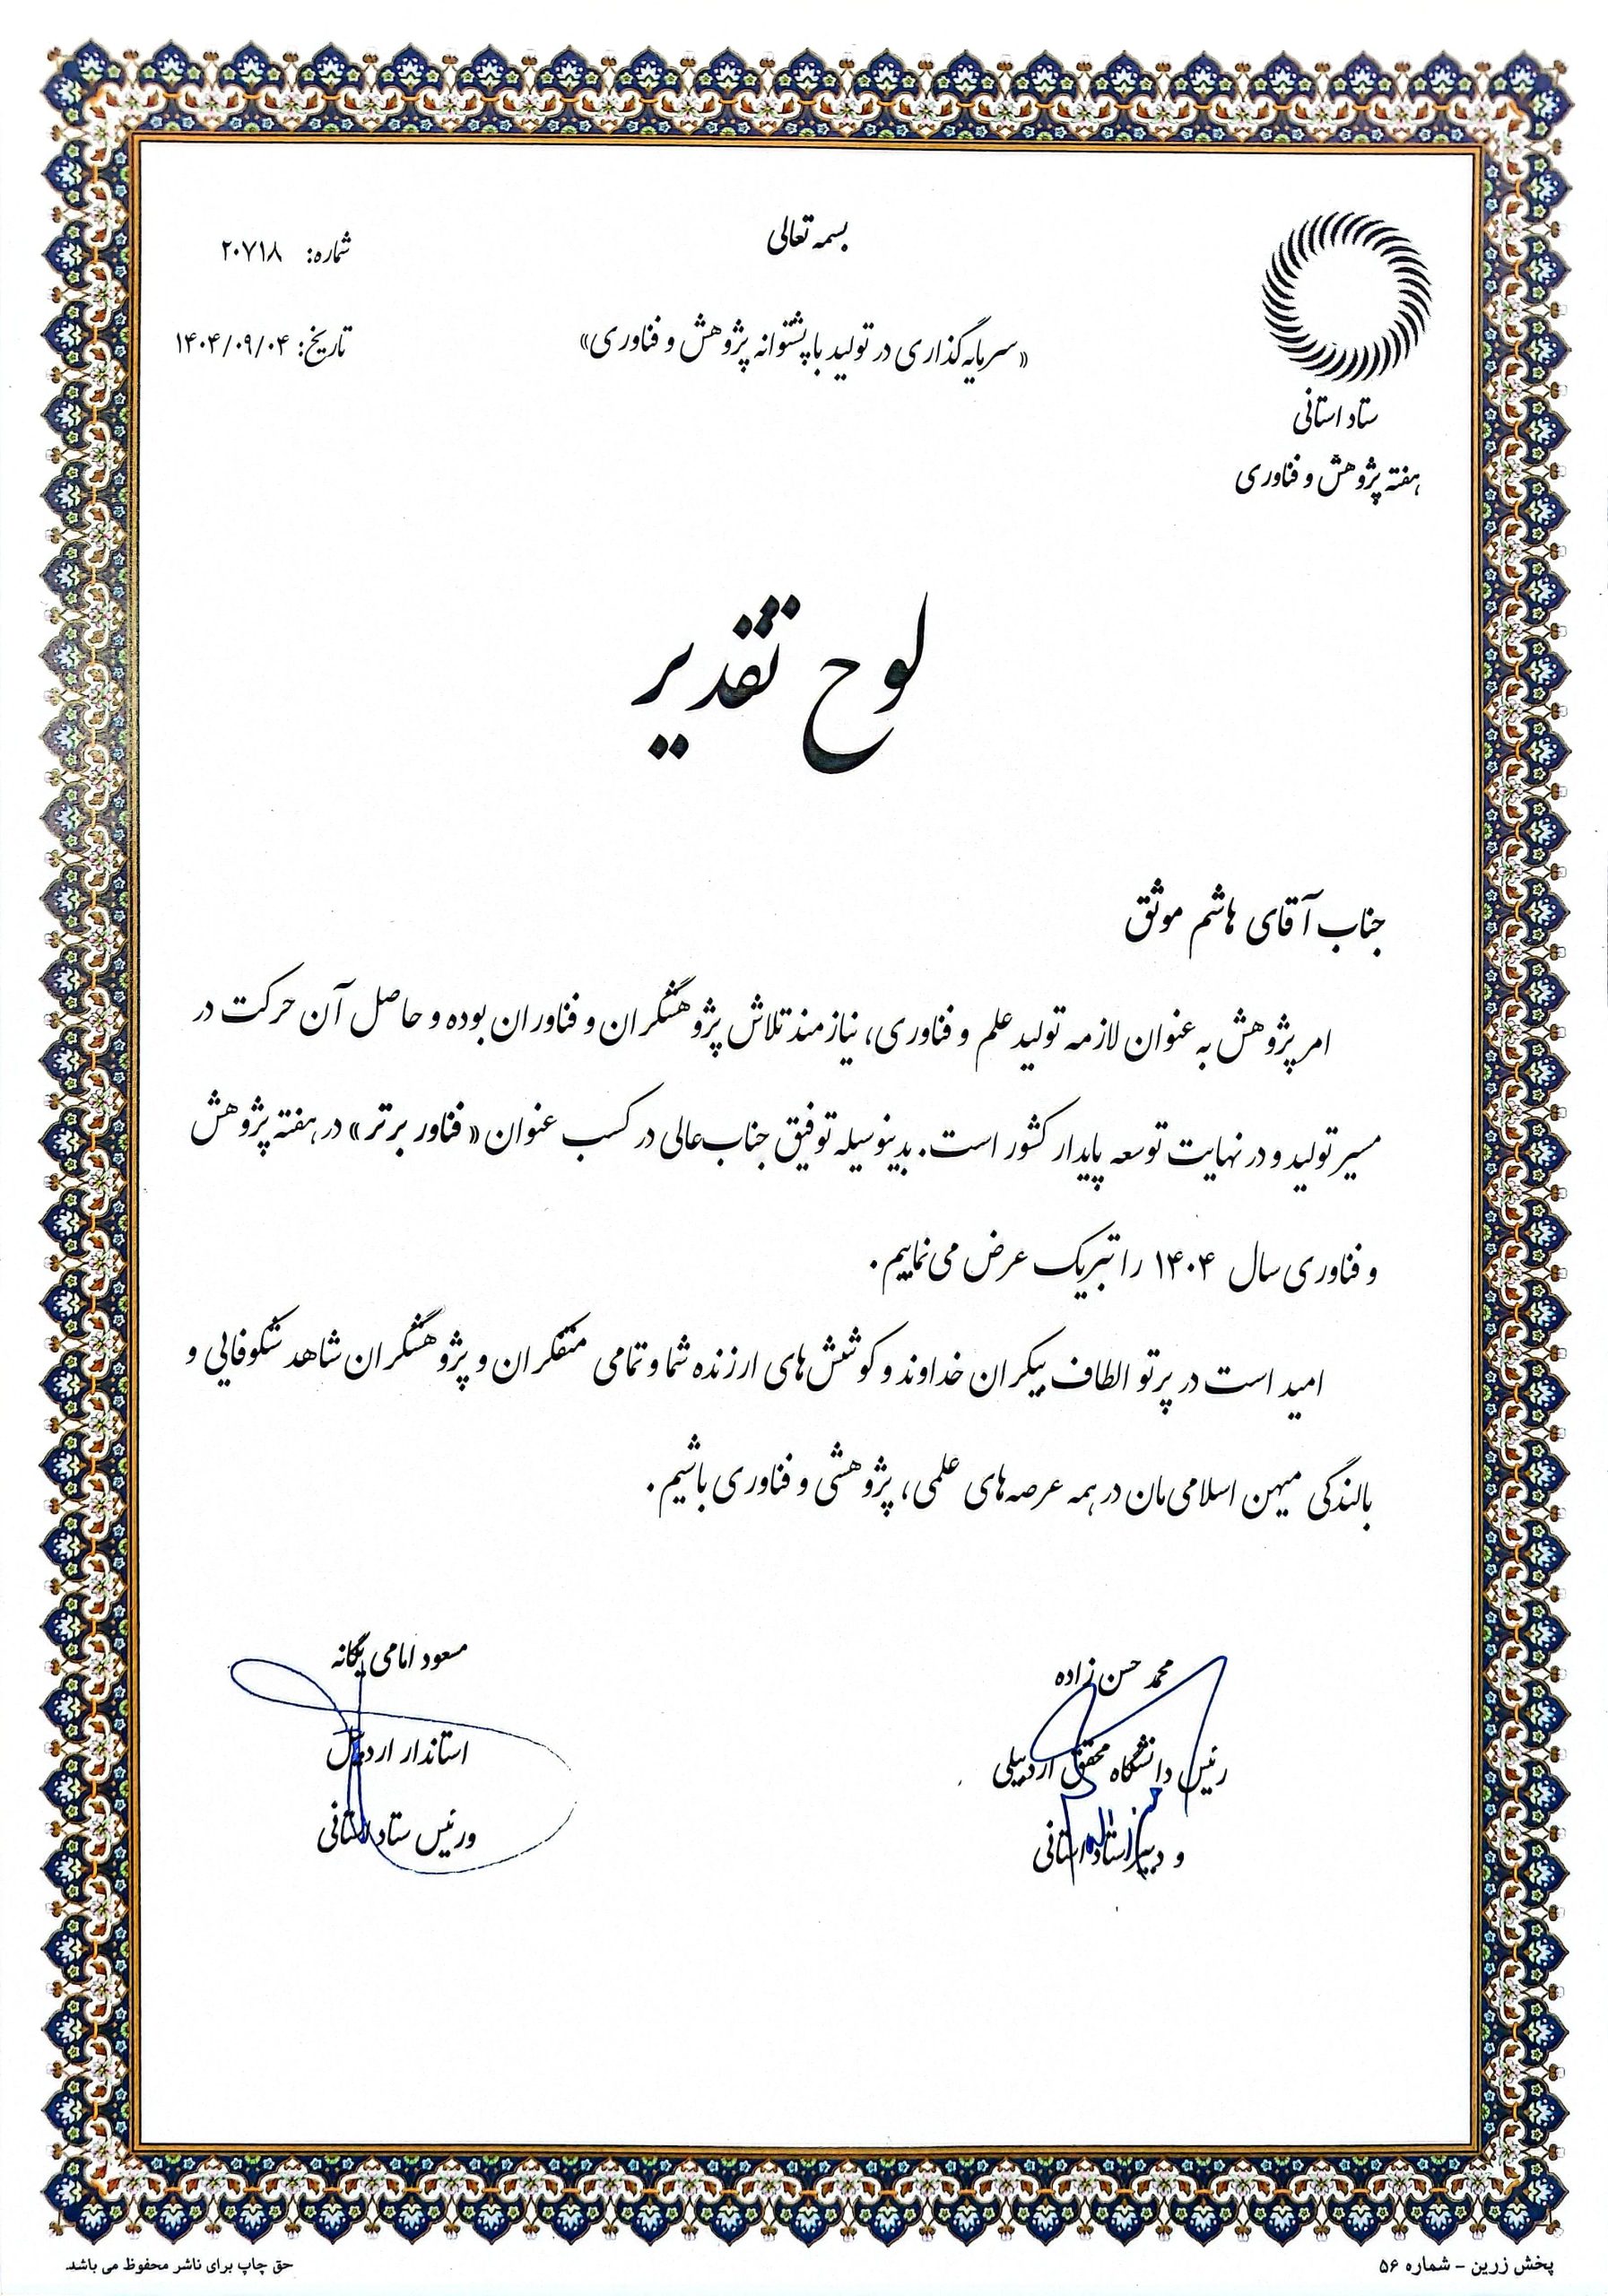 بسمه تعالی
شماره: ۲۰۷۱۸
«سرمایه‌گذاری در تولید با پشتوانه پژوهش و فناوری»
تاریخ: ۱۴۰۴/۰۹/۰۴
ستاد استانی
هفته پژوهش و فناوری
لوح تقدیر
جناب آقای هاشم موثق
امر پژوهش به عنوان لازمه تولید علم و فناوری، نیازمند تلاش پژوهشگران و فناوران بوده و حاصل آن حرکت در
مسیر تولید و در نهایت توسعه پایدار کشور است. بدینوسیله توفیق جناب‌عالی در کسب عنوان «فناور برتر» در هفته پژوهش
و فناوری سال ۱۴۰۴ را تبریک عرض می‌نماییم.
امید است در پرتو الطاف بیکران خداوند و کوشش‌های ارزنده شما و تمامی متفکران و پژوهشگران شاهد شکوفایی و
بالندگی میهن اسلامی‌مان در همه عرصه‌های علمی، پژوهشی و فناوری باشیم.
محمد حسن زاده
رئیس دانشگاه محقق اردبیلی
و دبیر ستاد استانی
مسعود امامی یگانه
استاندار اردبیل
و رئیس ستاد استانی
پخش زرین - شماره ۵۶
حق چاپ برای ناشر محفوظ می باشد.